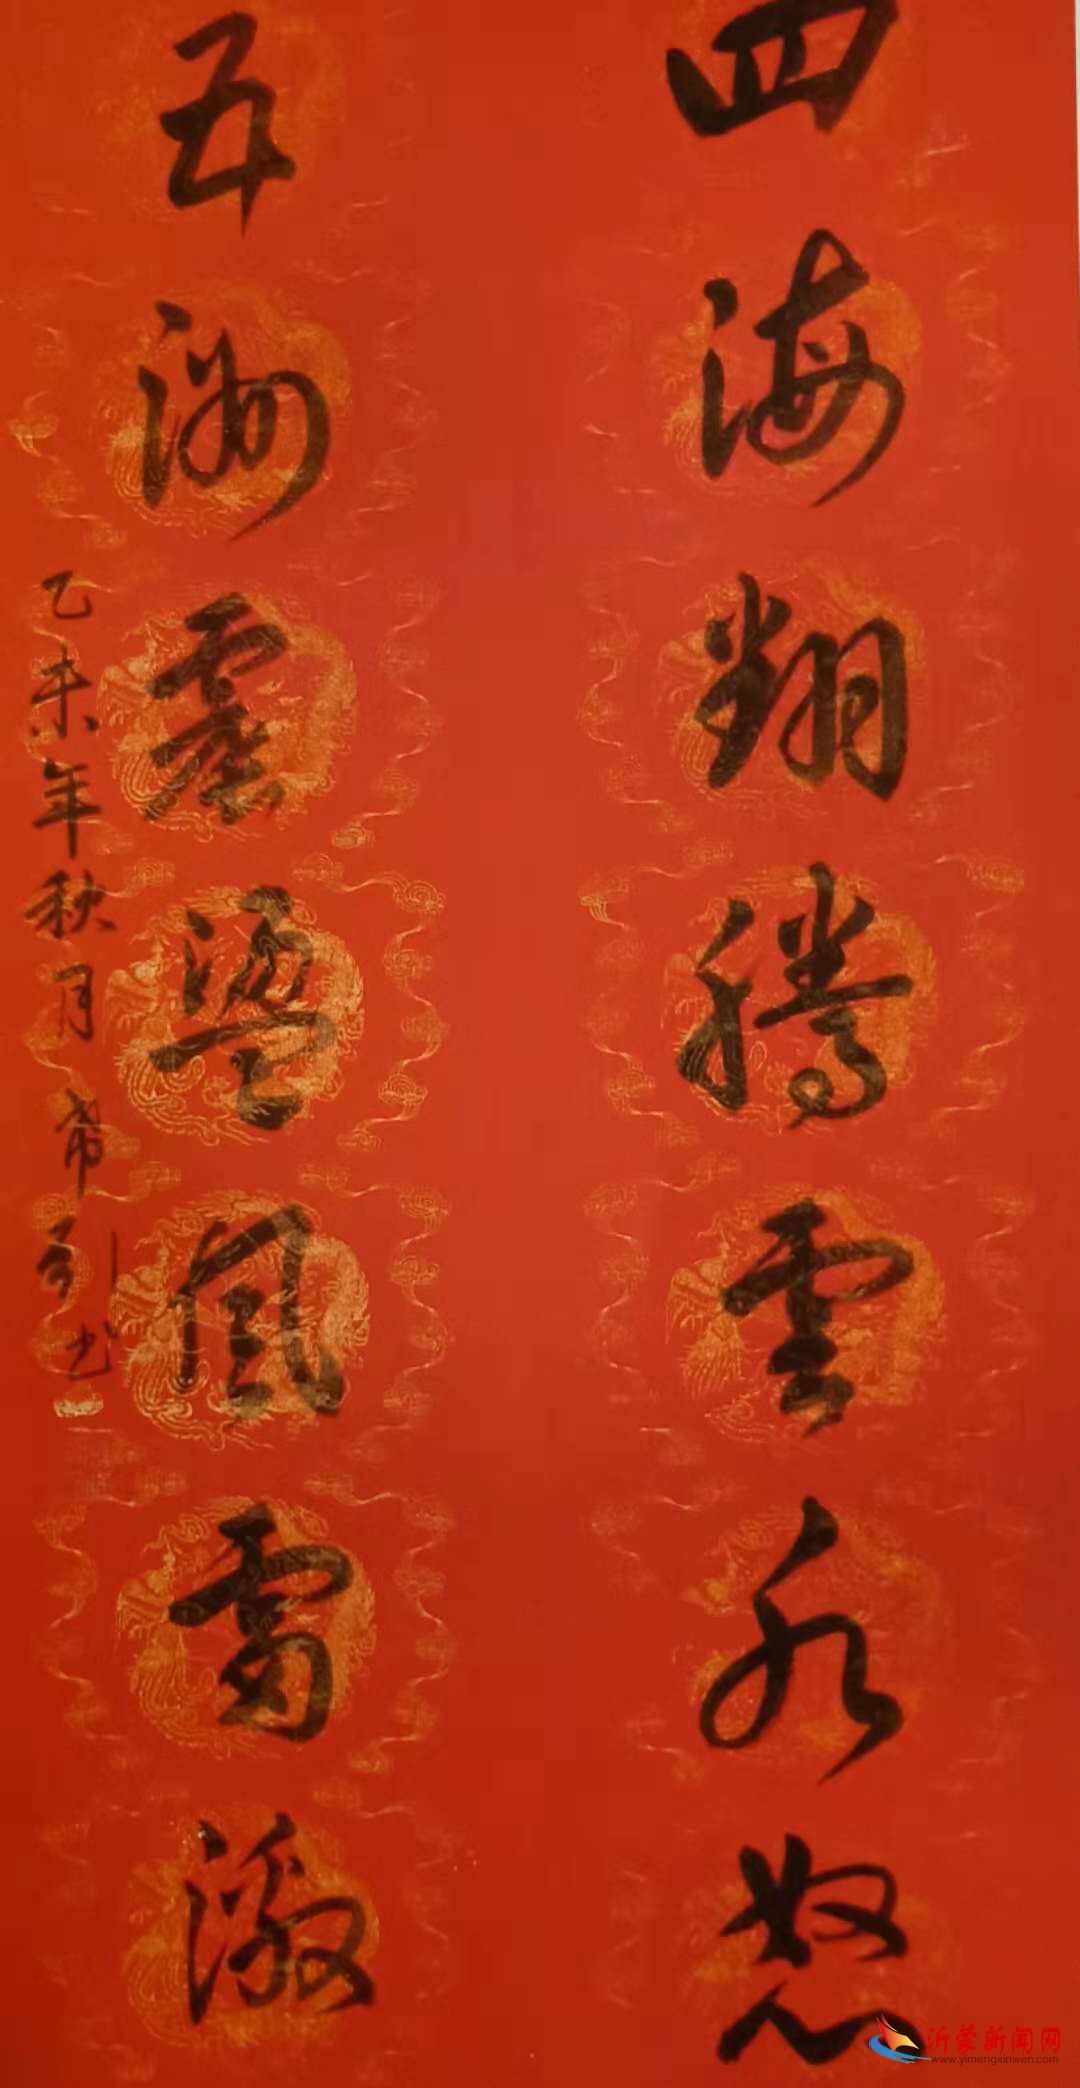 四海翻腾雲水怒
五洲震盪風雷激
乙未年秋月
书
沂蒙新闻网
www.yimengxinwen.com